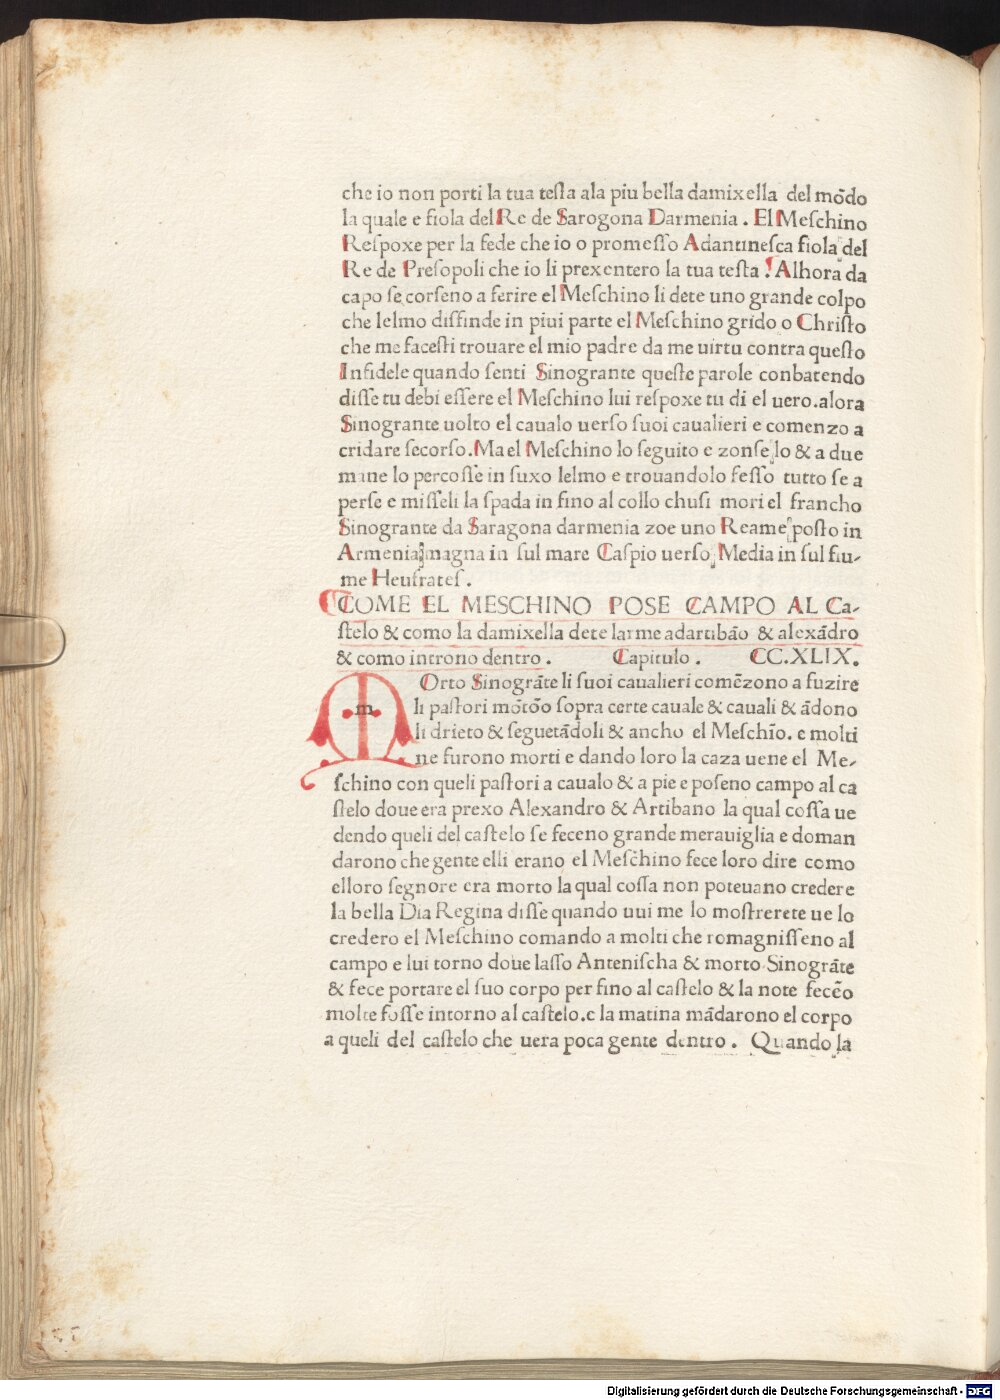 che io non porti la tua testa ala piu bella damixella del mōdo
la quale e fiola del Re de Sarogona Darmenia . El Meſchino
Reſpoxe per la fede che io o promeſſo Adantineſca fiola del
Re de Preſopoli che io li prexentero la tua teſta . Alhora da
capo ſe corſeno a ferire el Meſchino li dete uno grande colpo
che lelmo diſfinde in piui parte el Meſchino grido o Chriſto
che me faceſti trouare el mio padre da me uirtu contra queſto
Infidele quando ſenti Sinogrante queſte parole conbatendo
diſſe tu debi eſſere el Meſchino lui reſpoxe tu di el uero.alora
Sinogrante uolto el caualo uerſo ſuoi caualieri e comenzo a
cridare ſecorſo.Ma el Meſchino lo ſeguito e zonſe lo & a due
mane lo percoſſe in ſuxo lelmo e trouandolo feſſo tutto ſe a
perſe e miſſeli la ſpada in fino al collo chuſi mori el francho
Sinogrante da Saragona darmenia zoe uno Reame poſto in
Armenia magna in ſul mare Caſpio uerſo Media in ſul fiu-
me Heufrateſ .
COME EL MESCHINO POSE CAMPO AL Ca-
ſtelo & como la damixella dete larme adartibāo & alexādro
& como introno dentro . Capitulo . CC.XLIX.
m Orto Sinogrāte li ſuoi caualieri comēzono a fuzire
li paſtori mōtōo ſopra certe cauale & cauali & ādono
li drieto & ſeguetādoli & ancho el Meſchīo. e molti
ne furono morti e dando loro la caza uene el Me-
ſchino con queli paſtori a caualo & a pie e poſeno campo al ca
ſtelo doue era prexo Alexandro & Artibano la qual coſſa ue
dendo queli del caſtelo ſe feceno grande merauiglia e doman
darono che gente elli erano el Meſchino fece loro dire como
elloro ſegnore era morto la qual coſſa non poteuano credere
la bella Dia Regina diſſe quando uui me lo moſtrerete ue lo
credero el Meſchino comando a molti che romagniſſeno al
campo e lui torno doue laſſo Anteniſcha & morto Sinogrāte
& fece portare el ſuo corpo per fino al caſtelo & la note fecēo
molte foſſe intorno al caſtelo.e la matina mādarono el corpo
a queli del caſtelo che uera poca gente dentro . Quando la
Digitalisierung gefördert durch die Deutsche Forschungsgemeinschaft - DFG